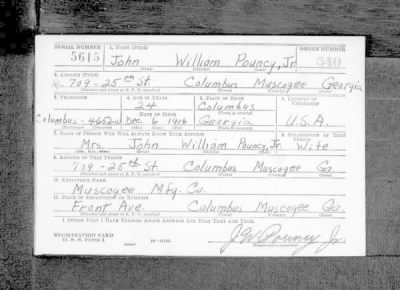 SERIAL NUMBER 1. NAME (Print) ORDER NUMBER
5615 John William Pouncy, Jr 540
(First) (Middle) (Last)
2. ADDRESS (Print)
709-25th St. Columbus Muscogee Georgia
3. TELEPHONE 4. AGE IN YEARS 5. PLACE OF BIRTH 6. COUNTRY OF CITIZENSHIP
24 Columbus
DATE OF BIRTH
Columbus-4652-W Dec. 6 1916 Georgia U.S.A.
7. NAME OF PERSON WHO WILL ALWAYS KNOW YOUR ADDRESS 8. RELATIONSHIP OF THAT PERSON
Mrs. John William Pouncy, Jr. Wife
(Mr., Mrs., Miss) (First) (Middle) (Last)
9. ADDRESS OF THAT PERSON
709-25th St. Columbus Muscogee Ga.
10. EMPLOYER'S NAME
Muscogee Mfg. Co.
11. PLACE OF EMPLOYMENT OR BUSINESS
Front Ave. Columbus Muscogee Ga.
I AFFIRM THAT I HAVE VERIFIED ABOVE ANSWERS AND THAT THEY ARE TRUE.
REGISTRATION CARD
D. S. S. FORM 1 J W Pouncy Jr